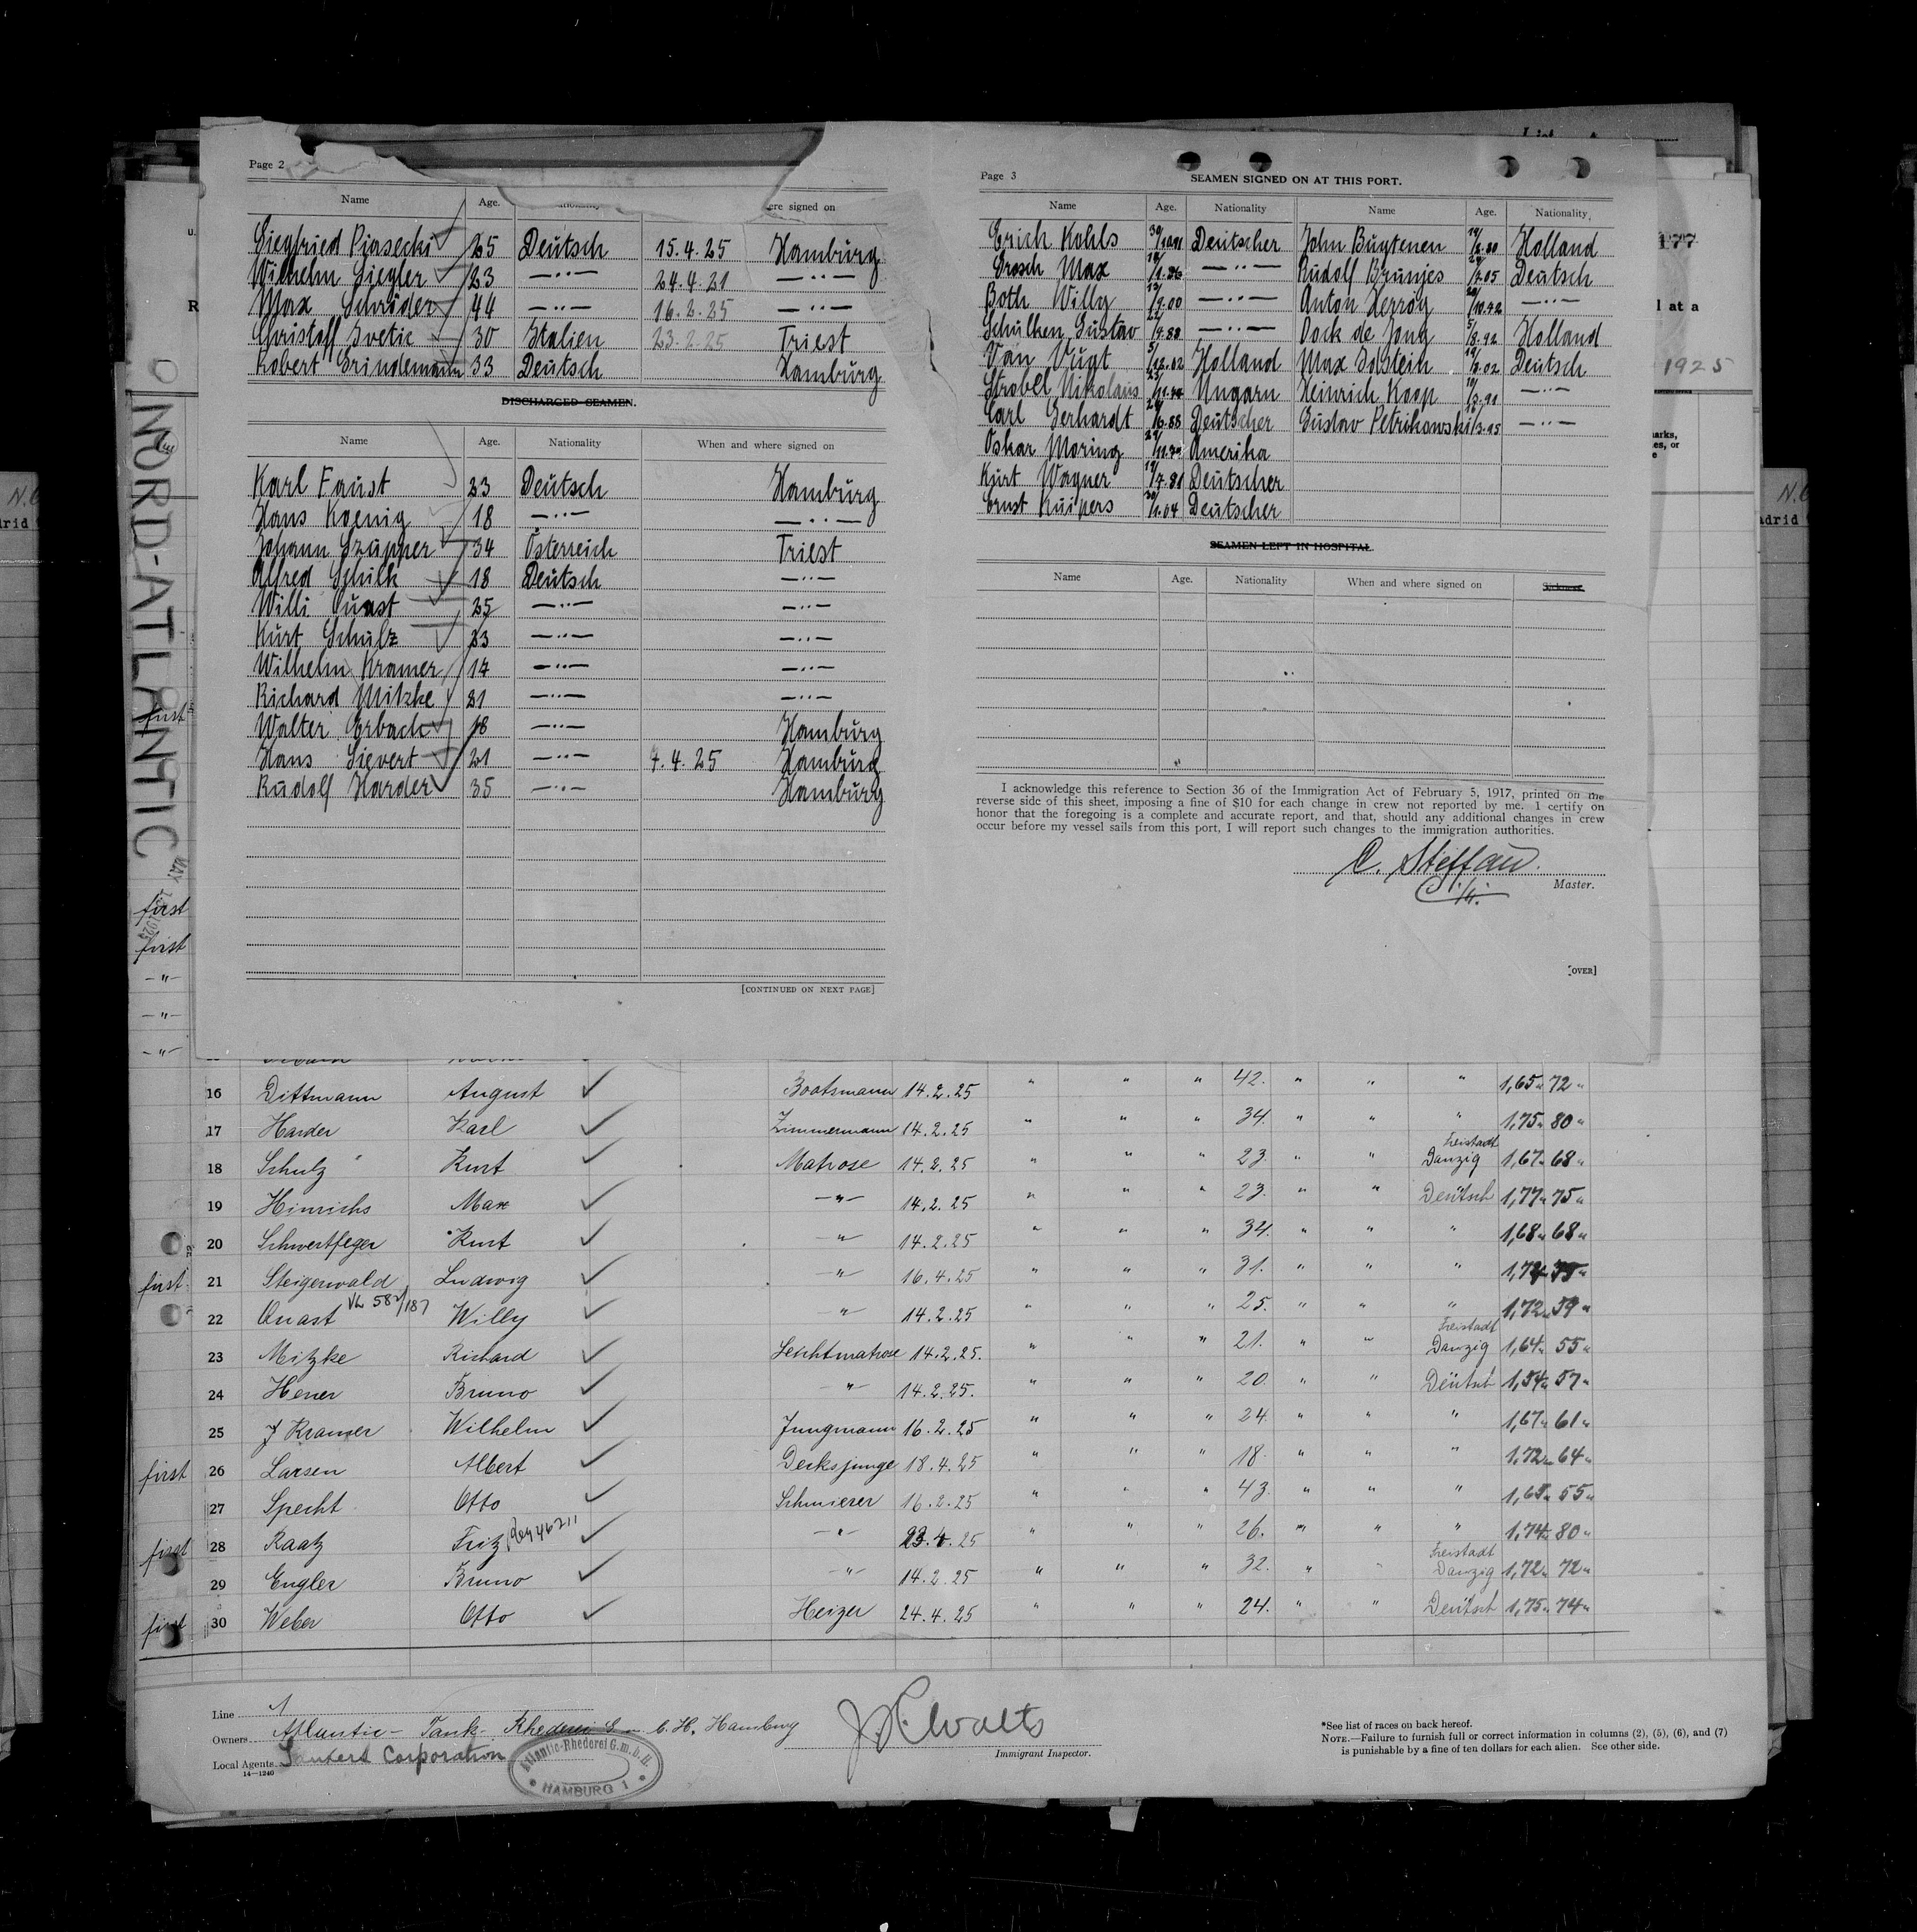 Page 2
Name Age. Nationality ere signed on
Siegfried Piasecki 25 Deutsch 15.4.25 Hamburg
Wilhelm Siegler 23 —"— 24.4.21 —"—
Max Schröder 44 —"— 16.2.25 —"—
Christoff Ivetic 30 Italien 23.2.25 Triest
Robert Grindemann 33 Deutsch Hamburg
DISCHARGED SEAMEN.
Name Age. Nationality When and where signed on
Karl Faust 23 Deutsch Hamburg
Hans Koenig 18 —"— —"—
Johann Szupper 34 Österreich Triest
Alfred Schilk 18 Deutsch —"—
Willi Quast 25 —"— —"—
Kurt Schulz 23 —"— —"—
Wilhelm Kramer 14 —"— —"—
Richard Mitzke 21 —"— —"—
Walter Erbach 18 —"— Hamburg
Hans Sievert 21 —"— 7.4.25 Hamburg
Rudolf Harder 35 —"— Hamburg
[CONTINUED ON NEXT PAGE]
Page 3 SEAMEN SIGNED ON AT THIS PORT.
Name Age. Nationality Name Age. Nationality
Erich Kohls Deutscher John Bugtenen Holland
Grosch Max —"— Rudolf Brunjes Deutsch
Both Willy 9.00 —"— Anton Herzog —"—
Schulken Gustav —"— Dock de Jong Holland
Van Vügt Holland Max Holstein Deutsch
Strobel Nikolaus Ungarn Heinrich Koop —"—
Carl Gerhardt Deutscher Gustav Petrikowski —"—
Oskar Moring Amerika
Kurt Wagner Deutscher
Ernst Kuipers Deutscher
SEAMEN LEFT IN HOSPITAL.
Name Age. Nationality When and where signed on Sickness.
I acknowledge this reference to Section 36 of the Immigration Act of February 5, 1917, printed on the
reverse side of this sheet, imposing a fine of $10 for each change in crew not reported by me. I certify on
honor that the foregoing is a complete and accurate report, and that, should any additional changes in crew
occur before my vessel sails from this port, I will report such changes to the immigration authorities.
C. Steffan
Master.
[OVER]
177
l at a
1925
NORD-ATLANTIC
MAY 1925
first
first
first
—"—
—"—
—"—
16 Dittmann August ✓ Bootsmann 14.2.25 " " " 42. " " " 1,65 " 72 "
17 Harder Karl ✓ Zimmermann 14.2.25 " " " 34. " " " 1,75 " 80 "
18 Schulz Kurt ✓ Matrose 14.2.25 " " " 23. " " Freistadt Danzig 1,67 " 68 "
19 Hinrichs Max ✓ —"— 14.2.25 " " " 23. " " Deutsch 1,77 " 75 "
20 Schwertfeger Kurt ✓ —"— 14.2.25 " " " 34. " " " 1,68 " 68 "
first 21 Steigerwald Ludwig ✓ —"— 16.4.25 " " " 31. " " "
22 Quast VL 582/187 Willy ✓ —"— 14.2.25 " " " 25. " " " 1,72 " 59 "
23 Mitzke Richard ✓ Leichtmatrose 14.2.25. " " " 21. " " Freistadt Danzig 1,64 " 55 "
24 Hener Bruno ✓ —"— 14.2.25. " " 20 " " Deutsch 1,54 " 57 "
25 J Kramer Wilhelm ✓ Jungmann 16.2.25 " " " 24. " " " 1,67 " 61 "
first 26 Larsen Albert ✓ Decksjunge 18.4.25 " " " 18. " " " 1,72 " 64 "
27 Specht Otto ✓ Schmierer 16.2.25 " " " 43 " " " 55 "
first 28 Raatz Fritz ✓ —"— 23.4.25 " " " 26. " " " 1,74 " 80 "
29 Engler Bruno ✓ —"— 14.2.25 " " " 32. " " Freistadt Danzig 1,72 " 72 "
first 30 Weber Otto ✓ Heizer 24.4.25 " " " 24. " " Deutsch 1,75 " 74 "
Line
Owners Atlantic - Tank - Rhederei G.m.b.H. Hamburg
Local Agents Tankers Corporation
14—1240
Atlantic-Rhederei G.m.b.H.
HAMBURG 1
Immigrant Inspector.
*See list of races on back hereof.
NOTE.—Failure to furnish full or correct information in columns (2), (5), (6), and (7)
is punishable by a fine of ten dollars for each alien. See other side.